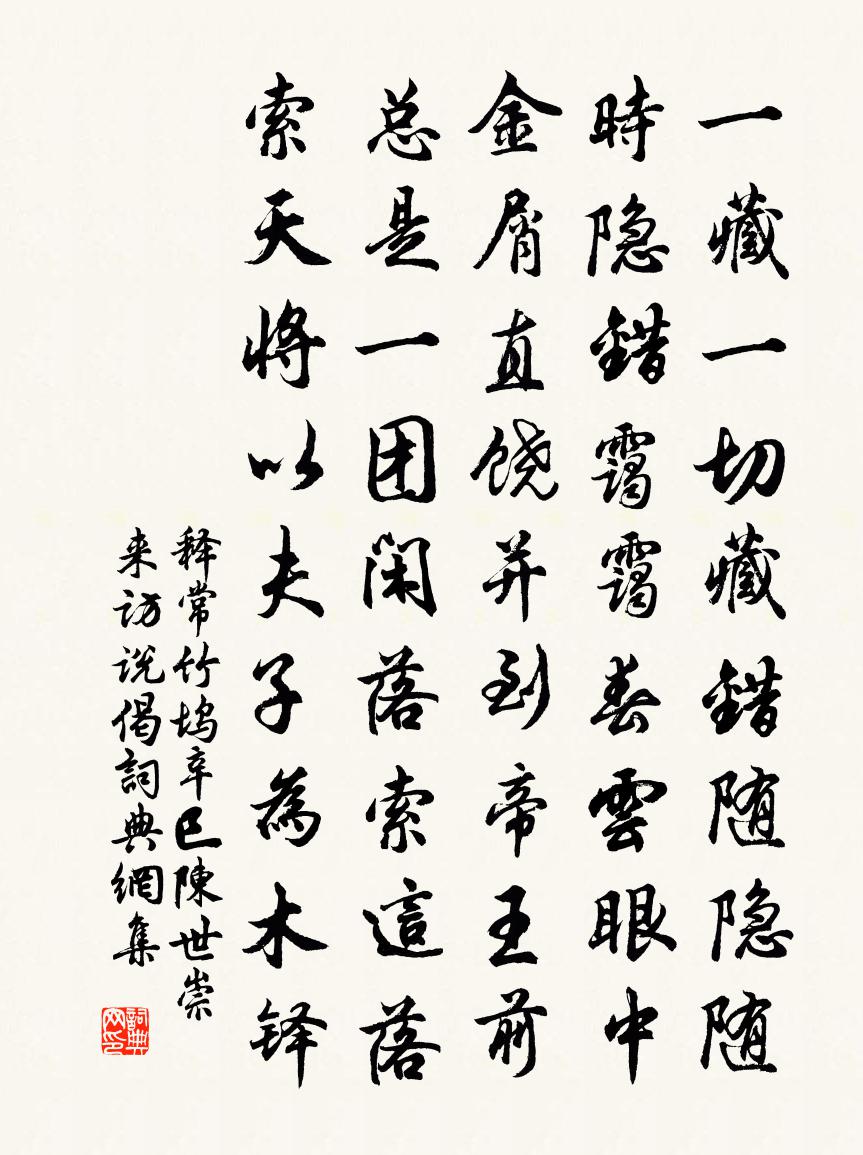 一藏一切藏錯随隐随
時隐錯靄靄春雲眼中
金屑直饶并到帝王前
总是一团闲落索這落
索天将以夫子為木铎
释常竹坞辛巳陳世崇
来访说偈詞典網集
詞典网印